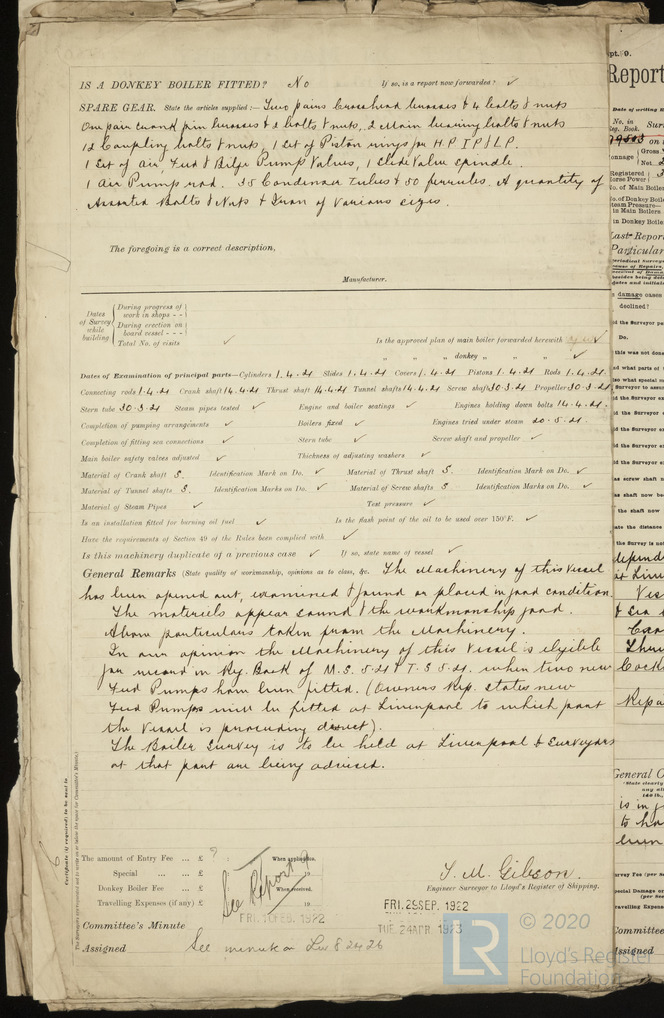 IS A DONKEY BOILER FITTED? No If so, is a report now forwarded? ✓
SPARE GEAR. State the articles supplied:— Two pairs Crosshead brasses & 4 bolts & nuts
One pair crank pin brasses & 2 bolts & nuts, 2 Main bearing bolts & nuts
12 Coupling bolts & nuts, 1 Set of Piston rings for H.P I P & L P.
1 Set of Air, Feed & Bilge Pump Valves, 1 Slide Valve spindle.
1 Air Pump rod. 35 Condenser Tubes & 50 ferrules. A quantity of
Assorted Bolts & Nuts & Iron of various sizes.
The foregoing is a correct description,
Manufacturer.
Dates of Survey while building
During progress of work in shops - -
During erection on board vessel - - -
Total No. of visits ✓
Is the approved plan of main boiler forwarded herewith ✓
" " " donkey " " " ✓
Dates of Examination of principal parts—Cylinders 1.4.21 Slides 1.4.21 Covers 1.4.21 Pistons 1.4.21 Rods 1.4.21
Connecting rods 1.4.21 Crank shaft 14.4.21 Thrust shaft 14.4.21 Tunnel shafts 14.4.21 Screw shaft 30.3.21 Propeller 30.3.21
Stern tube 30.3.21 Steam pipes tested ✓ Engine and boiler seatings ✓ Engines holding down bolts 14.4.21.
Completion of pumping arrangements ✓ Boilers fixed ✓ Engines tried under steam 20.5.21.
Completion of fitting sea connections ✓ Stern tube ✓ Screw shaft and propeller ✓
Main boiler safety valves adjusted ✓ Thickness of adjusting washers ✓
Material of Crank shaft S. Identification Mark on Do. ✓ Material of Thrust shaft S. Identification Mark on Do. ✓
Material of Tunnel shafts S. Identification Marks on Do. ✓ Material of Screw shafts S Identification Marks on Do. ✓
Material of Steam Pipes ✓ Test pressure ✓
Is an installation fitted for burning oil fuel ✓ Is the flash point of the oil to be used over 150°F. ✓
Have the requirements of Section 49 of the Rules been complied with ✓
Is this machinery duplicate of a previous case ✓ If so, state name of vessel ✓
General Remarks (State quality of workmanship, opinions as to class, &c. The Machinery of this Vessel
has been opened out, examined & found or placed in good condition.
The materials appear sound & the workmanship good.
Above particulars taken from the Machinery.
In our opinion the Machinery of this Vessel is eligible
for record in Reg. Book of M.S. 5.21 & T.S 5.21. when two new
Feed Pumps have been fitted. (Owners Rep. states new
Feed Pumps will be fitted at Liverpool to which port
the Vessel is proceeding direct).
The Boiler Survey is to be held at Liverpool & Surveyors
at that port are being advised.
Certificate (if required) to be sent to
The amount of Entry Fee ... £ ? : When applied for,
Special ... ... £
Donkey Boiler Fee ... £ When received,
Travelling Expenses (if any) £
See Report
S. M. Gibson.
Engineer Surveyor to Lloyd's Register of Shipping.
FRI. 10 FEB. 1922
FRI. 29 SEP. 1922
TUE. 24 APR. 1923
Committee's Minute
Assigned See minute on
LR
© 2020
Lloyd's Register
Foundation